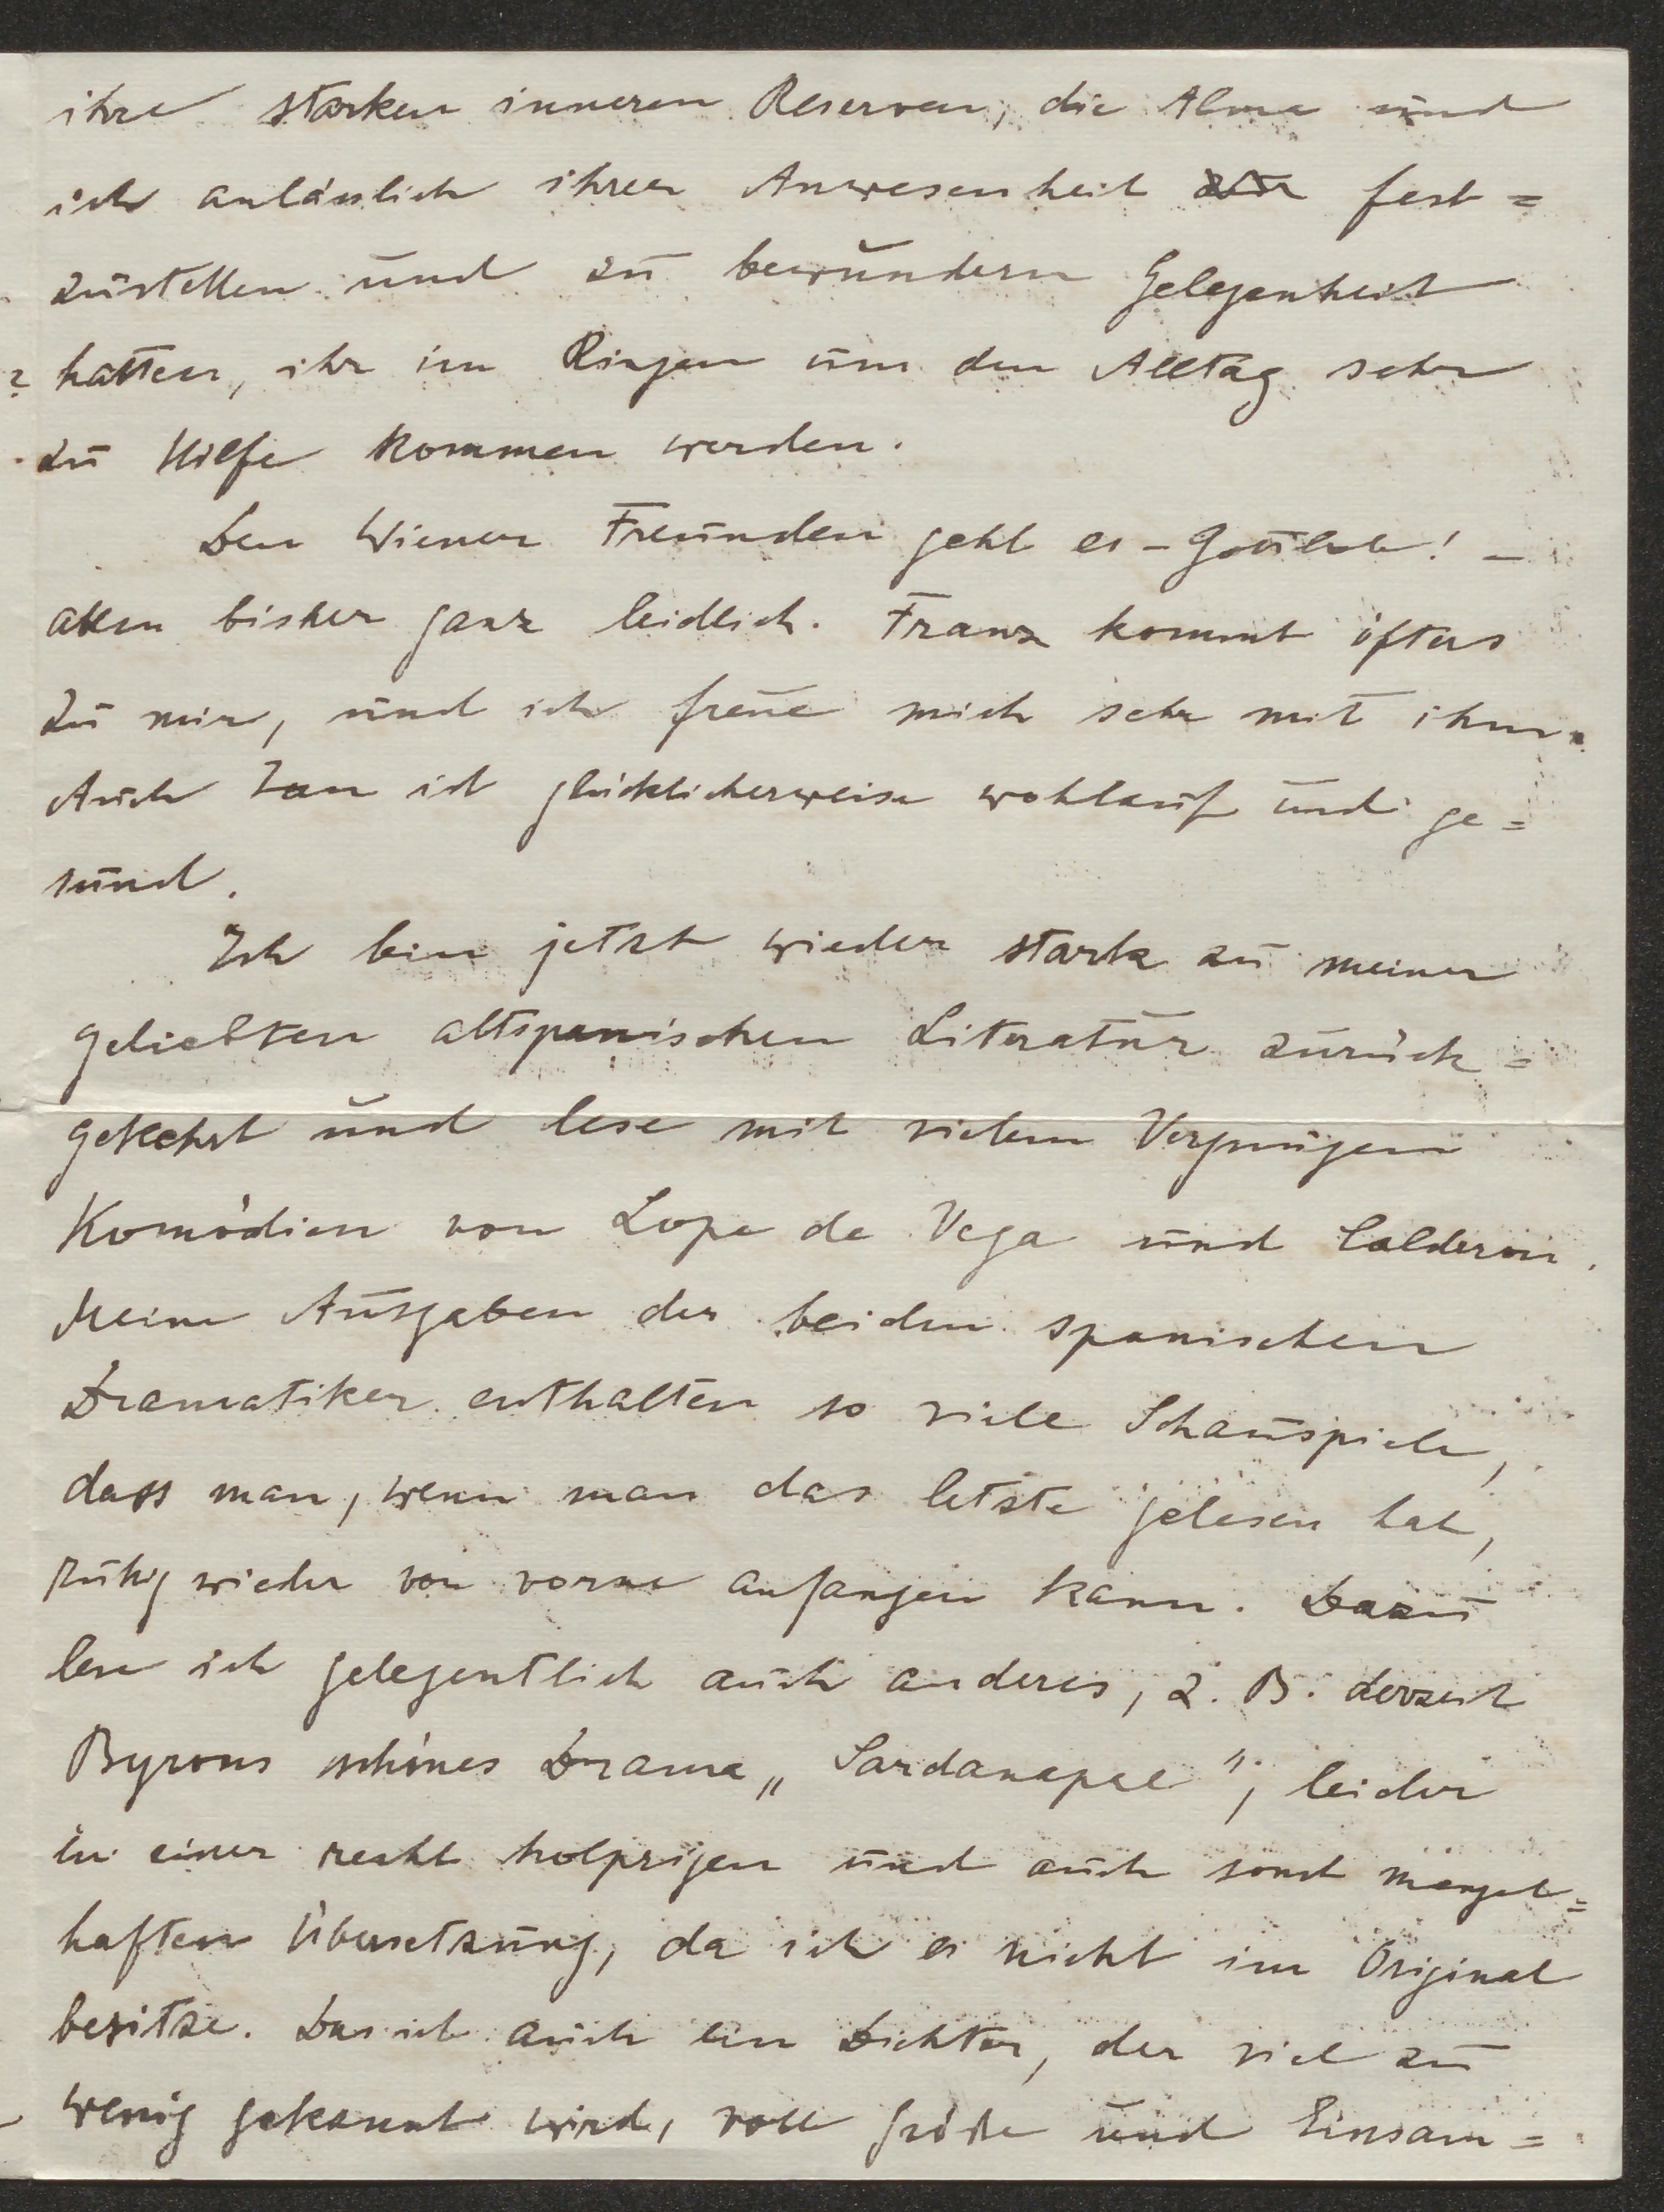 ihre starken inneren Reserven, die Alma und
ich anlässlich ihrer Anwesenheit fest=
zustellen und zu bewundern Gelegenheit
hatten, ihr im Ringen um den Alltag sehr
zu Hilfe kommen werden.
Den Wiener Freunden geht es - Gottlob! -
allen bisher ganz leidlich. Franz kommt öfters
zu mir, und ich freue mich sehr mit ihm.
Auch Jan ist glücklicherweise wohlauf und ge=
sund.
Ich bin jetzt wieder stark zu meiner
geliebten altspanischen Literatur zurück=
gekehrt und lese mit vielem Vergnügen
Komödien von Lope de Vega und Calderon.
Meine Ausgaben der beiden spanischen
Dramatiker enthalten so viele Schauspiele,
dass man, wenn man das letzte gelesen hat,
ruhig wieder von vorne anfangen kann. Dazu
lese ich gelegentlich auch anderes, z. B. derzeit
Byrons schönes Drama „Sardanapal", leider
in einer recht holprigen und auch sonst mangel=
haften Übersetzung, da ich es nicht im Original
besitze. Das ist auch ein Dichter, der viel zu
wenig gekannt wird, voll Größe und Einsam=